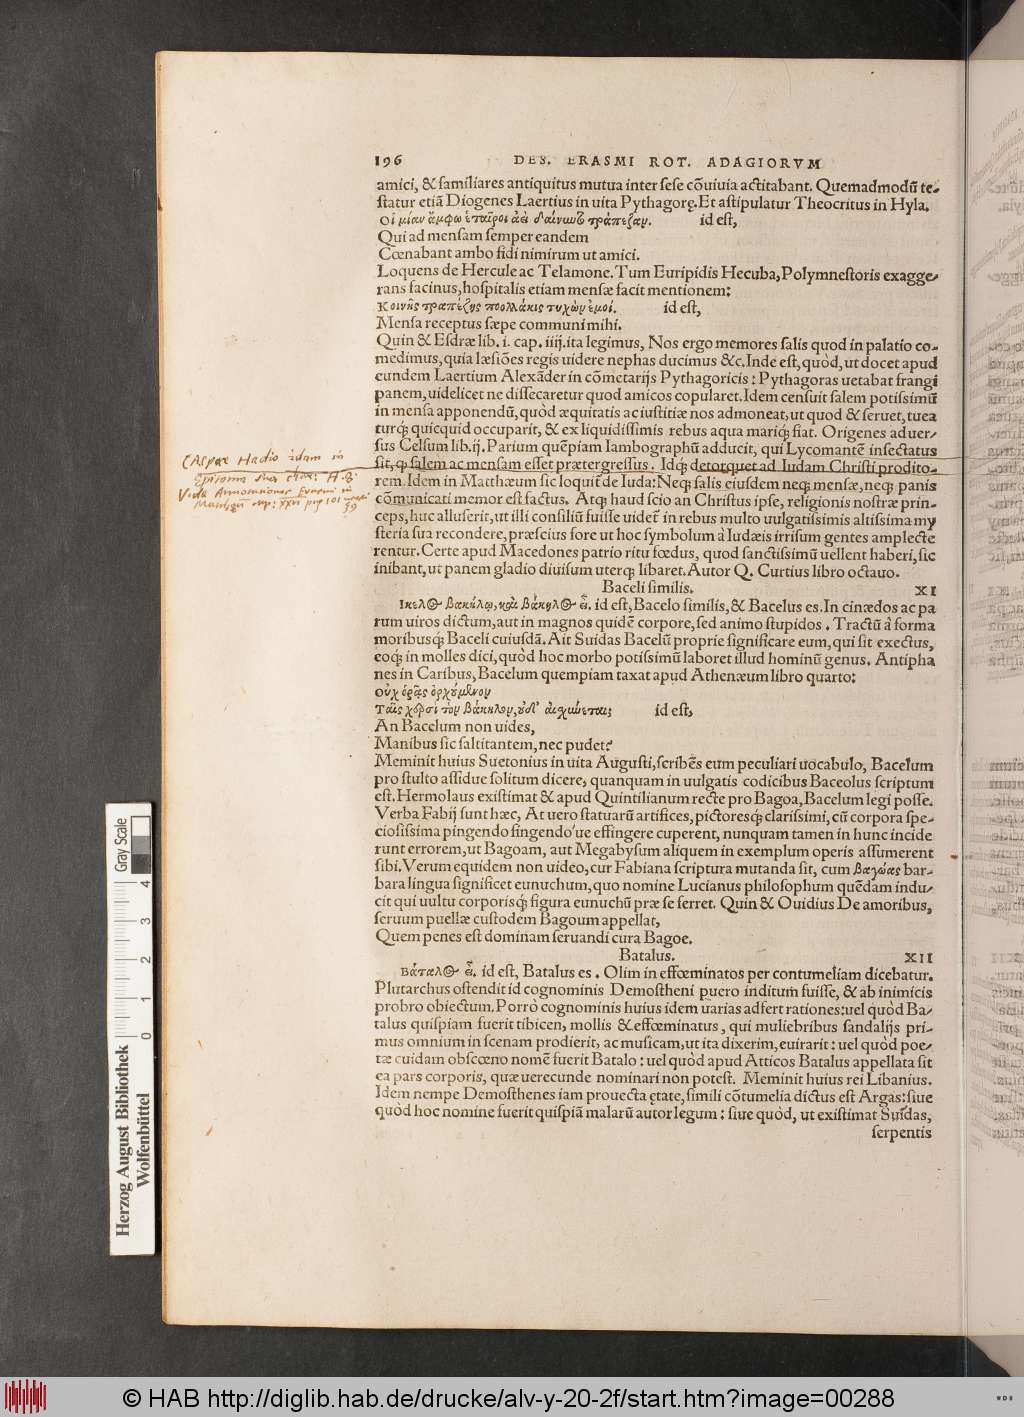 196 DES. ERASMI ROT. ADAGIORVM
amici, & familiares antiquitus mutua inter sese cõuiuia actitabant. Quemadmodũ te-
statur etiã Diogenes Laertius in uita Pythagorę. Et astipulatur Theocritus in Hyla.
Οἱ μίαν ἄμφω ἑταῖροι ἀεὶ δαίνυντο τράπεζαν. id est,
Qui ad mensam semper eandem
Cœnabant ambo fidi nimirum ut amici.
Loquens de Hercule ac Telamone. Tum Euripidis Hecuba, Polymnestoris exagge-
rans facinus, hospitalis etiam mensæ facit mentionem:
Κοινῆς τραπέζης πολλάκις τυχὼν ἐμοί. id est,
Mensa receptus sæpe communi mihi.
Quin & Esdræ lib. i. cap. iiij. ita legimus, Nos ergo memores salis quod in palatio co-
medimus, quia læsiões regis uidere nephas ducimus &c. Inde est, quòd, ut docet apud
eundem Laertium Alexãder in cõmetarijs Pythagoricis: Pythagoras uetabat frangi
panem, uidelicet ne dissecaretur quod amicos copularet. Idem censuit salem potissimũ
in mensa apponendũ, quòd æquitatis ac iustitiæ nos admoneat, ut quod & seruet, tuea
turq; quicquid occuparit, & ex liquidissimis rebus aqua mariq; fiat. Origenes aduer-
sus Celsum lib. ij. Parium quẽpiam Iambographũ adducit, qui Lycomantẽ insectatus
sit, q̃ salem ac mensam esset prætergressus. Idq; detorquet ad Iudam Christi prodito-
rem. Idem in Matthæum sic loquit̃ de Iuda: Neq; salis eiusdem neq; mensæ, neq; panis
cõmunicati memor est factus. Atq; haud scio an Christus ipse, religionis nostræ prin-
ceps, huc alluserit, ut illi consiliũ fuisse uidet̃ in rebus multo uulgatissimis altissima my
steria sua recondere, præscius fore ut hoc symbolum à Iudæis irrisum gentes amplecte
rentur. Certe apud Macedones patrio ritu fœdus, quod sanctissimũ uellent haberi, sic
inibant, ut panem gladio diuisum uterq; libaret. Autor Q. Curtius libro octauo.
Baceli similis. XI
Ἴκελος Βακήλῳ, καὶ Βάκηλος εἶ. id est, Bacelo similis, & Bacelus es. In cinædos ac pa
rum uiros dictum, aut in magnos quidẽ corpore, sed animo stupidos. Tractũ à forma
moribusq; Baceli cuiusdã. Ait Suidas Bacelũ proprie significare eum, qui sit exectus,
eoq; in molles dici, quòd hoc morbo potissimũ laboret illud hominũ genus. Antipha
nes in Caribus, Bacelum quempiam taxat apud Athenæum libro quarto:
οὐχ ὁρᾷς ὀρχούμενον
Ταῖς χερσὶ τὸν βάκηλον, οὐδ' αἰσχύνεται; id est,
An Bacelum non uides,
Manibus sic saltitantem, nec pudet?
Meminit huius Suetonius in uita Augusti, scribẽs eum peculiari uocabulo, Bacelum
pro stulto assidue solitum dicere, quanquam in uulgatis codicibus Baceolus scriptum
est. Hermolaus existimat & apud Quintilianum recte pro Bagoa, Bacelum legi posse.
Verba Fabij sunt hæc, At uero statuarũ artifices, pictoresq; clarissimi, cũ corpora spe-
ciosissima pingendo fingendo'ue effingere cuperent, nunquam tamen in hunc incide
runt errorem, ut Bagoam, aut Megabysum aliquem in exemplum operis assumerent
sibi. Verum equidem non uideo, cur Fabiana scriptura mutanda sit, cum βαγώας bar-
bara lingua significet eunuchum, quo nomine Lucianus philosophum quẽdam indu-
cit qui uultu corporisq; figura eunuchũ præ se ferret. Quin & Ouidius De amoribus,
seruum puellæ custodem Bagoum appellat,
Quem penes est dominam seruandi cura Bagoe.
Batalus. XII
Βάταλος εἶ. id est, Batalus es. Olim in effœminatos per contumeliam dicebatur.
Plutarchus ostendit id cognominis Demostheni puero inditum fuisse, & ab inimicis
probro obiectum. Porrò cognominis huius idem uarias adfert rationes: uel quòd Ba-
talus quispiam fuerit tibicen, mollis & effœminatus, qui muliebribus sandalijs pri-
mus omnium in scenam prodierit, ac musicam, ut ita dixerim, euirarit: uel quòd poe-
tæ cuidam obscœno nomẽ fuerit Batalo: uel quòd apud Atticos Batalus appellata sit
ea pars corporis, quæ uerecunde nominari non potest. Meminit huius rei Libanius.
Idem nempe Demosthenes iam prouecta ętate, simili cõtumelia dictus est Argas: siue
quòd hoc nomine fuerit quispiã malarũ autor legum: siue quòd, ut existimat Suidas,
serpentis
Caspar Hedio idem in
Epitome
Vide Annotationes
Gray Scale
0 1 2 3 4
Herzog August Bibliothek
Wolfenbüttel
© HAB http://diglib.hab.de/drucke/alv-y-20-2f/start.htm?image=00288